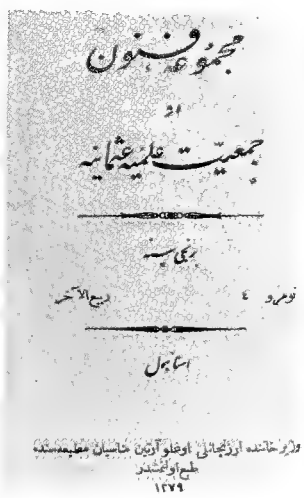 مجموعهٔ فنون
از
جمعيت علميهٔ عثمانيه
برنجی سنه
نومرو ٤ ربيع الآخر
استانبول
وزير خاننده ارزنجانلی اوغلو آرتين خاسيان مطبعه‌سنده
طبع اولنمشدر
١٢٧٩